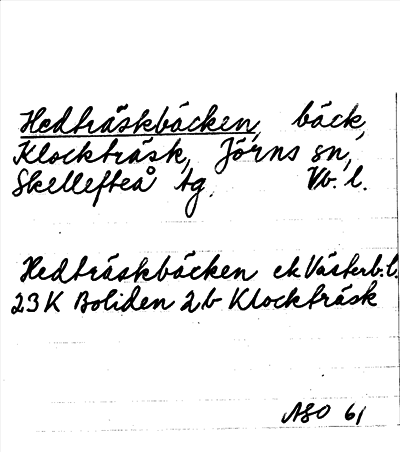 Hedträskbäcken, bäck,
Klockträsk, Jörns sn,
Skellefteå tg. Vb. l.
Hedträskbäcken ek Västerb. l.
23K Boliden 2b Klockträsk
ASO 61